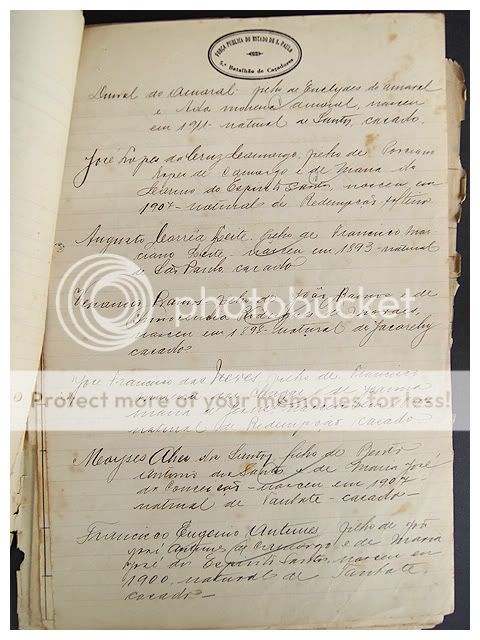 FORÇA PUBLICA DO ESTADO DE S. PAULO
5.º Batalhão de Caçadores
Durval do Amaral filho de Euclydes do amaral
e Ada morena amaral, nasceu
em 1911 - natural de Santos, casado.
José Lopes da Cruz Camargo, filho de
Lopes de Camargo e de Maria
do Espirito Santo, nasceu em
1907 - natural de Redempção solteiro
Augusto Corrêa Leite filho de Francisco Mar-
ciano Leite, nasceu em 1893 - natural
de São Paulo casado
Ramos filho de João Ramos e de
nasceu em 1898 - natural de Jacarehy
casado
photobucket
Protect more of your memories for less!
José Francisco das Neves, filho de Francisco
Maria
natural de Redempção, casado
Moyses Alves dos Santos, filho de Bento
Antonio dos Santos e de Maria José
da Conceição - nasceu em 1907
natural de Taubate - casado -
Francisco Eugenio Antunes filho de
José Antunes de Camargo e de Maria
José do Espirito Santo, nasceu em
1900, natural de Taubate.
casado -